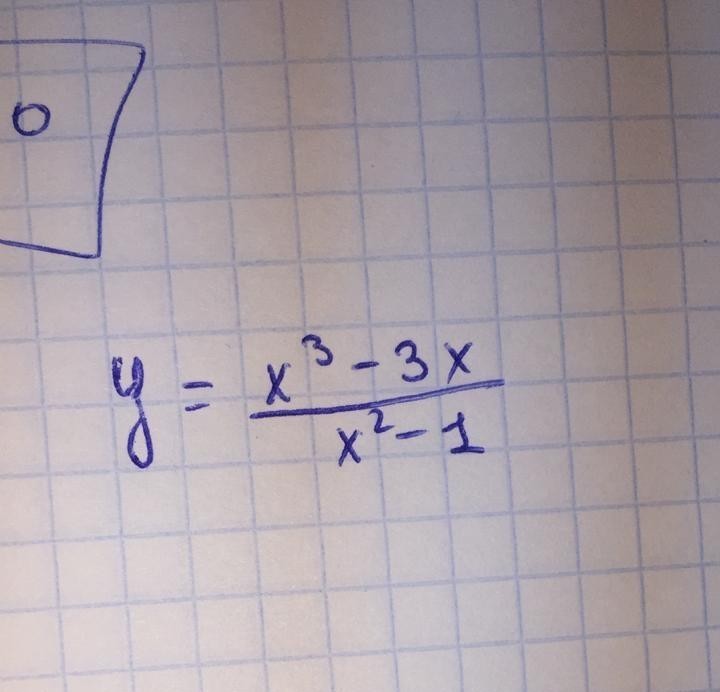 0
y = \frac{x^3 - 3x}{x^2 - 1}